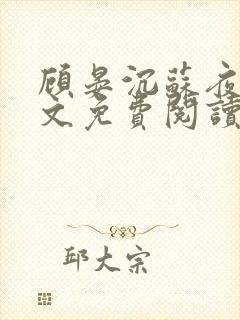 顾晏沉蘇夜
文免費閱讀
邱大宗